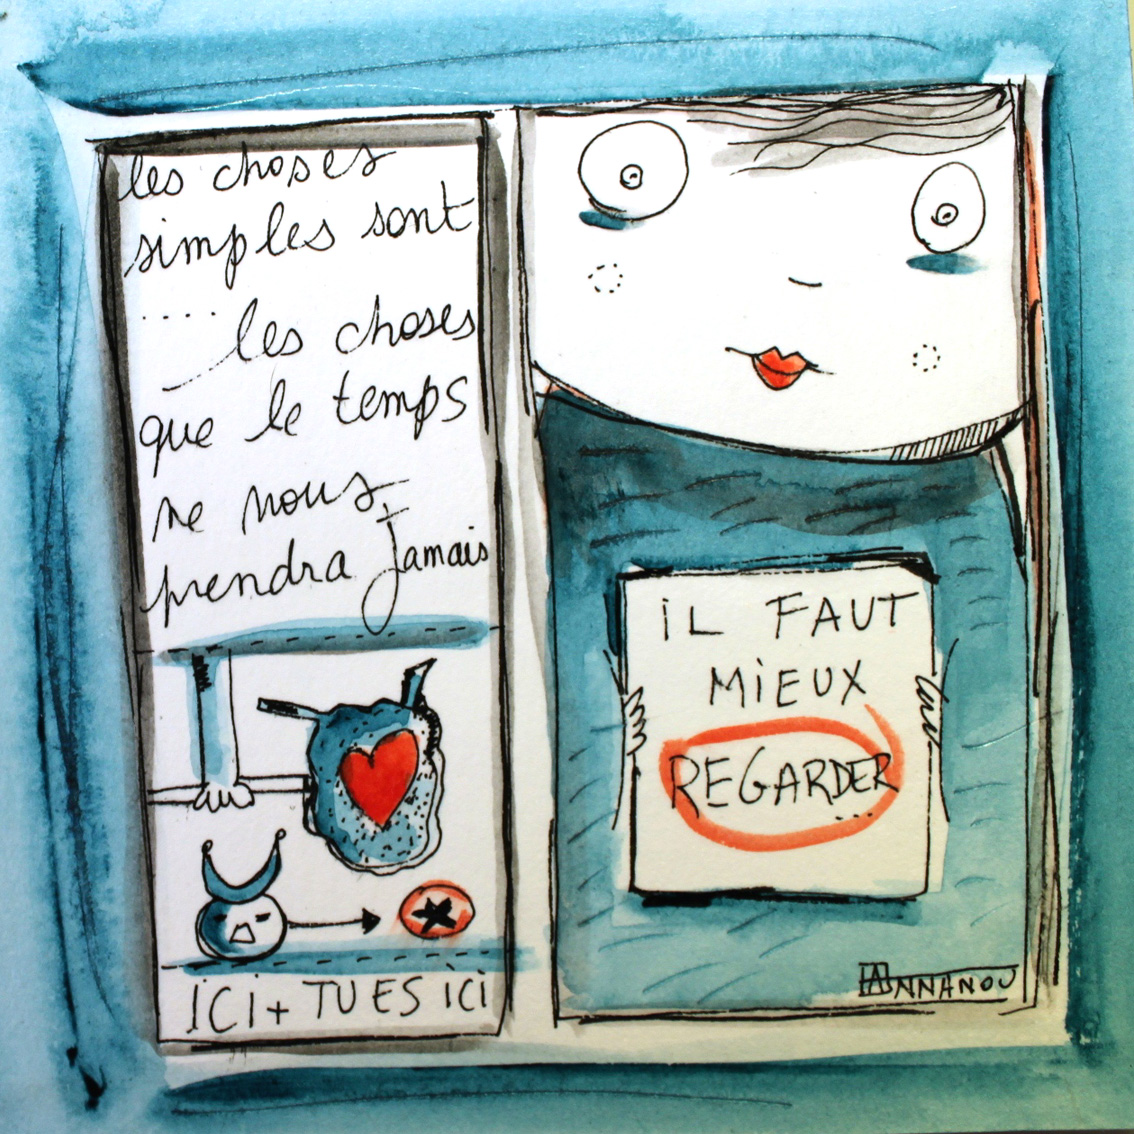 les choses
simples sont
.... les choses
que le temps
ne nous
prendra jamais
ICI + TU ES ICI
IL FAUT
MIEUX
REGARDER...
ANNANOU